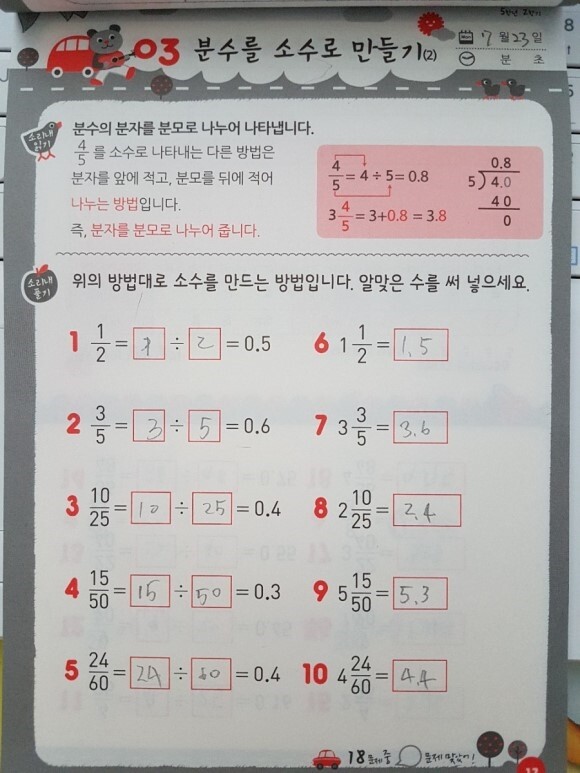 03 분수를 소수로 만들기(2)
7월 23일
분 초
소리내 읽기
분수의 분자를 분모로 나누어 나타냅니다.
4/5 를 소수로 나타내는 다른 방법은
분자를 앞에 적고, 분모를 뒤에 적어
나누는 방법입니다.
즉, 분자를 분모로 나누어 줍니다.
4/5 = 4 ÷ 5 = 0.8
3 4/5 = 3+0.8 = 3.8
0.8
5 ) 4.0
4 0
0
소리내 풀기
위의 방법대로 소수를 만드는 방법입니다. 알맞은 수를 써 넣으세요.
1 1/2 = 1 ÷ 2 = 0.5
2 3/5 = 3 ÷ 5 = 0.6
3 10/25 = 10 ÷ 25 = 0.4
4 15/50 = 15 ÷ 50 = 0.3
5 24/60 = 24 ÷ 60 = 0.4
6 1 1/2 = 1.5
7 3 3/5 = 3.6
8 2 10/25 = 2.4
9 5 15/50 = 5.3
10 4 24/60 = 4.4
18문제 중 문제 맞았어!